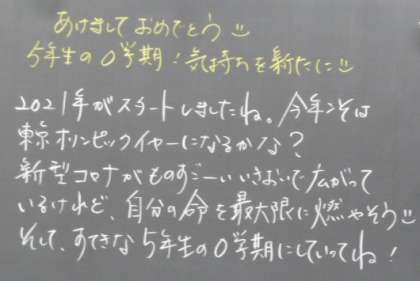 あけましておめでとう
5年生の0学期!気持ちを新たに
2021年がスタートしましたね。今年こそは
東京オリンピックイヤーになるかな?
新型コロナがものすごーいいきおいで広がって
いるけれど、自分の命を最大限に燃やそう
そして、すてきな5年生の0学期にしていってね!